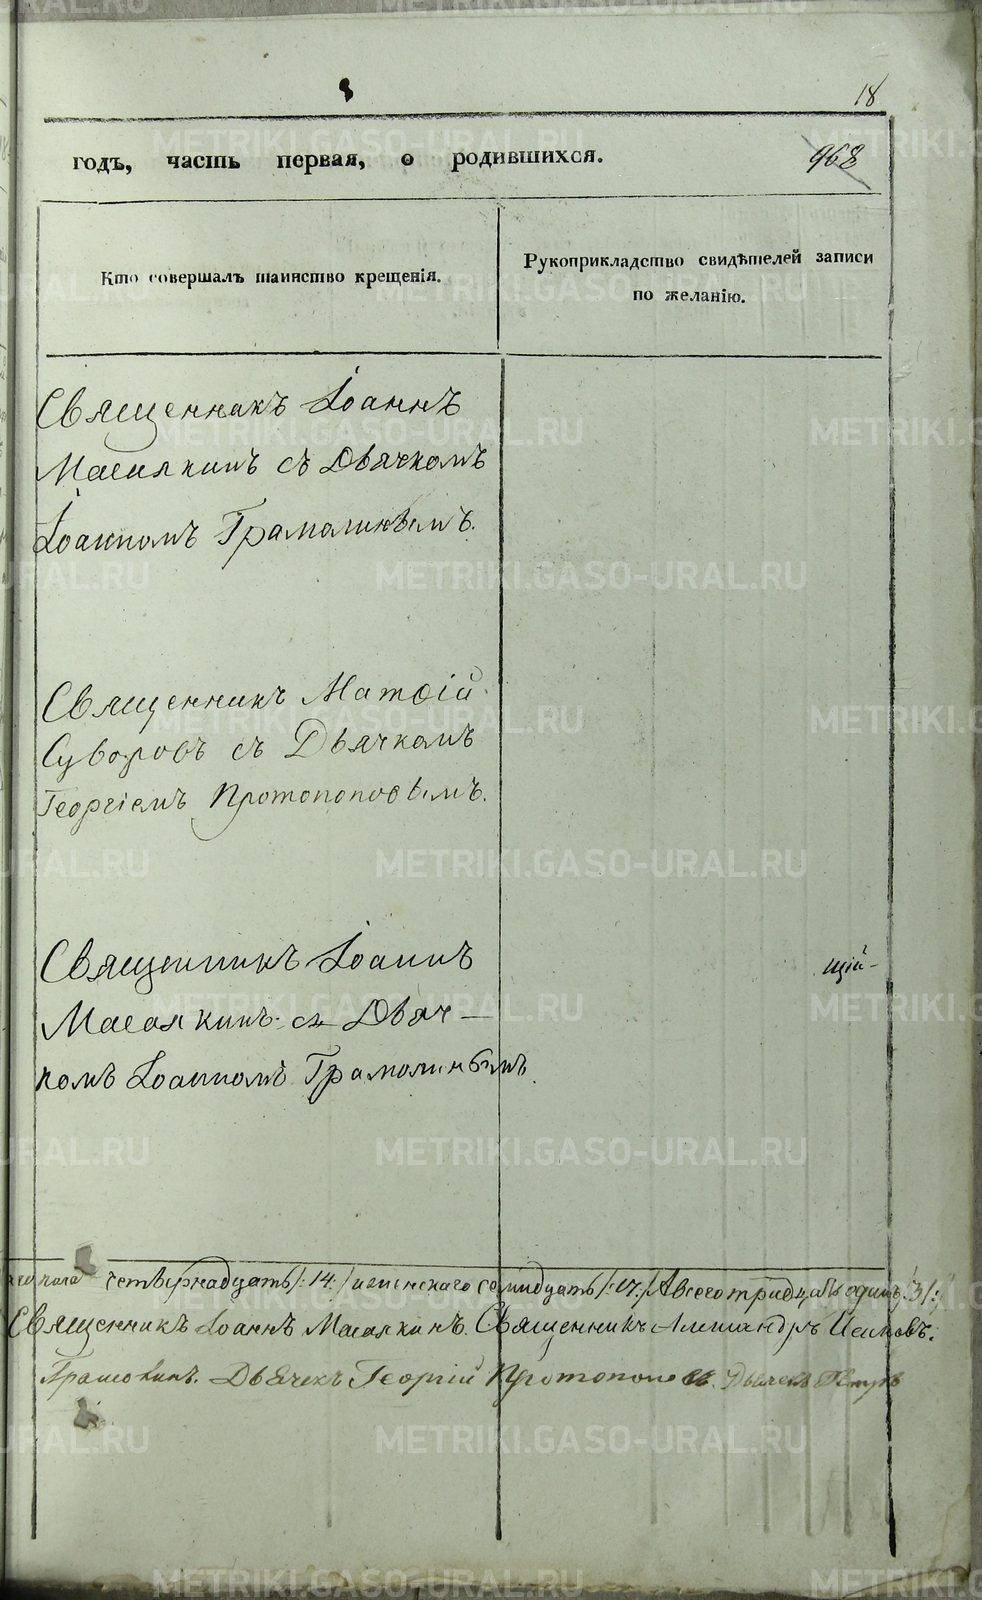 18
годъ, часть первая, о родившихся.
968
Кто совершалъ таинство крещенія.
Рукоприкладство свидѣтелей записи
по желанію.
Священникъ Іоаннъ
Масалкинъ съ Дьячкомъ
Іоанномъ Грамолинымъ.
Священникъ Матѳій
Суворовъ съ Дьячкомъ
Георгіемъ Протопоповымъ.
Священникъ Іоаннъ
щій-
Масалкинъ съ Дьяч-
комъ Іоанномъ Грамолинымъ
четырнадцать /:14./ женскаго семнадцать /:17./ А всего тридцать одинъ /:31:/
Священникъ Іоаннъ Масалкинъ. Священникъ Александръ
Дьячекъ Георгій Протопоповъ. Дьячекъ Петръ
METRIKI.GASO-URAL.RU